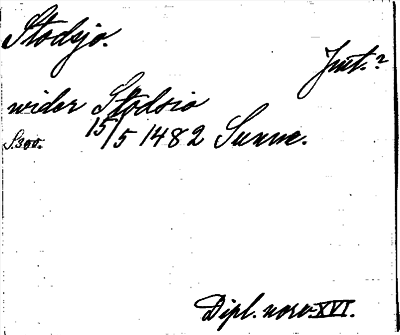 Stodsjö.
Jmt.?
wider Stödsio
S. 300. 15/5 1482 Sunne.
Dipl. norv. XVI.